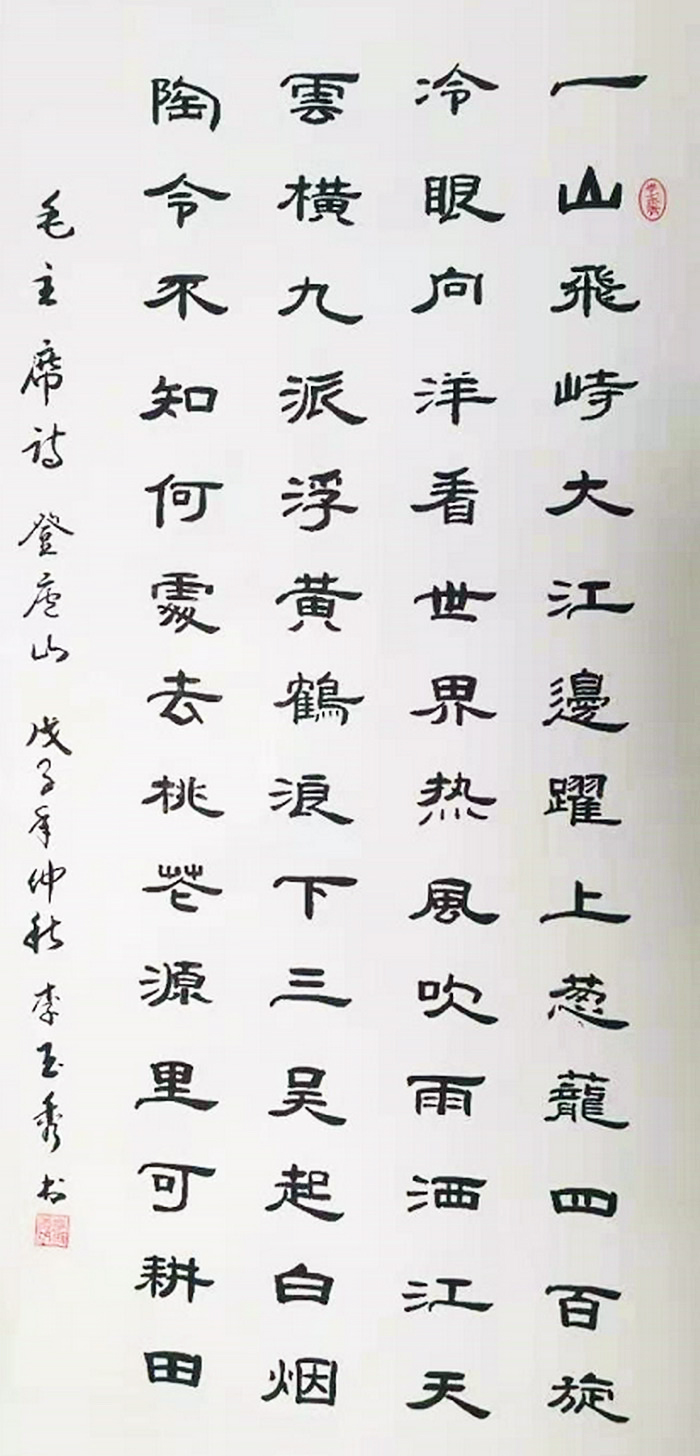 一山飛峙大江邊躍上葱蘢四百旋
冷眼向洋看世界热風吹雨洒江天
雲橫九派浮黄鶴浪下三吴起白烟
陶令不知何處去桃芲源里可耕田
毛主席诗 登庐山 戊子年仲秋 李玉秀书